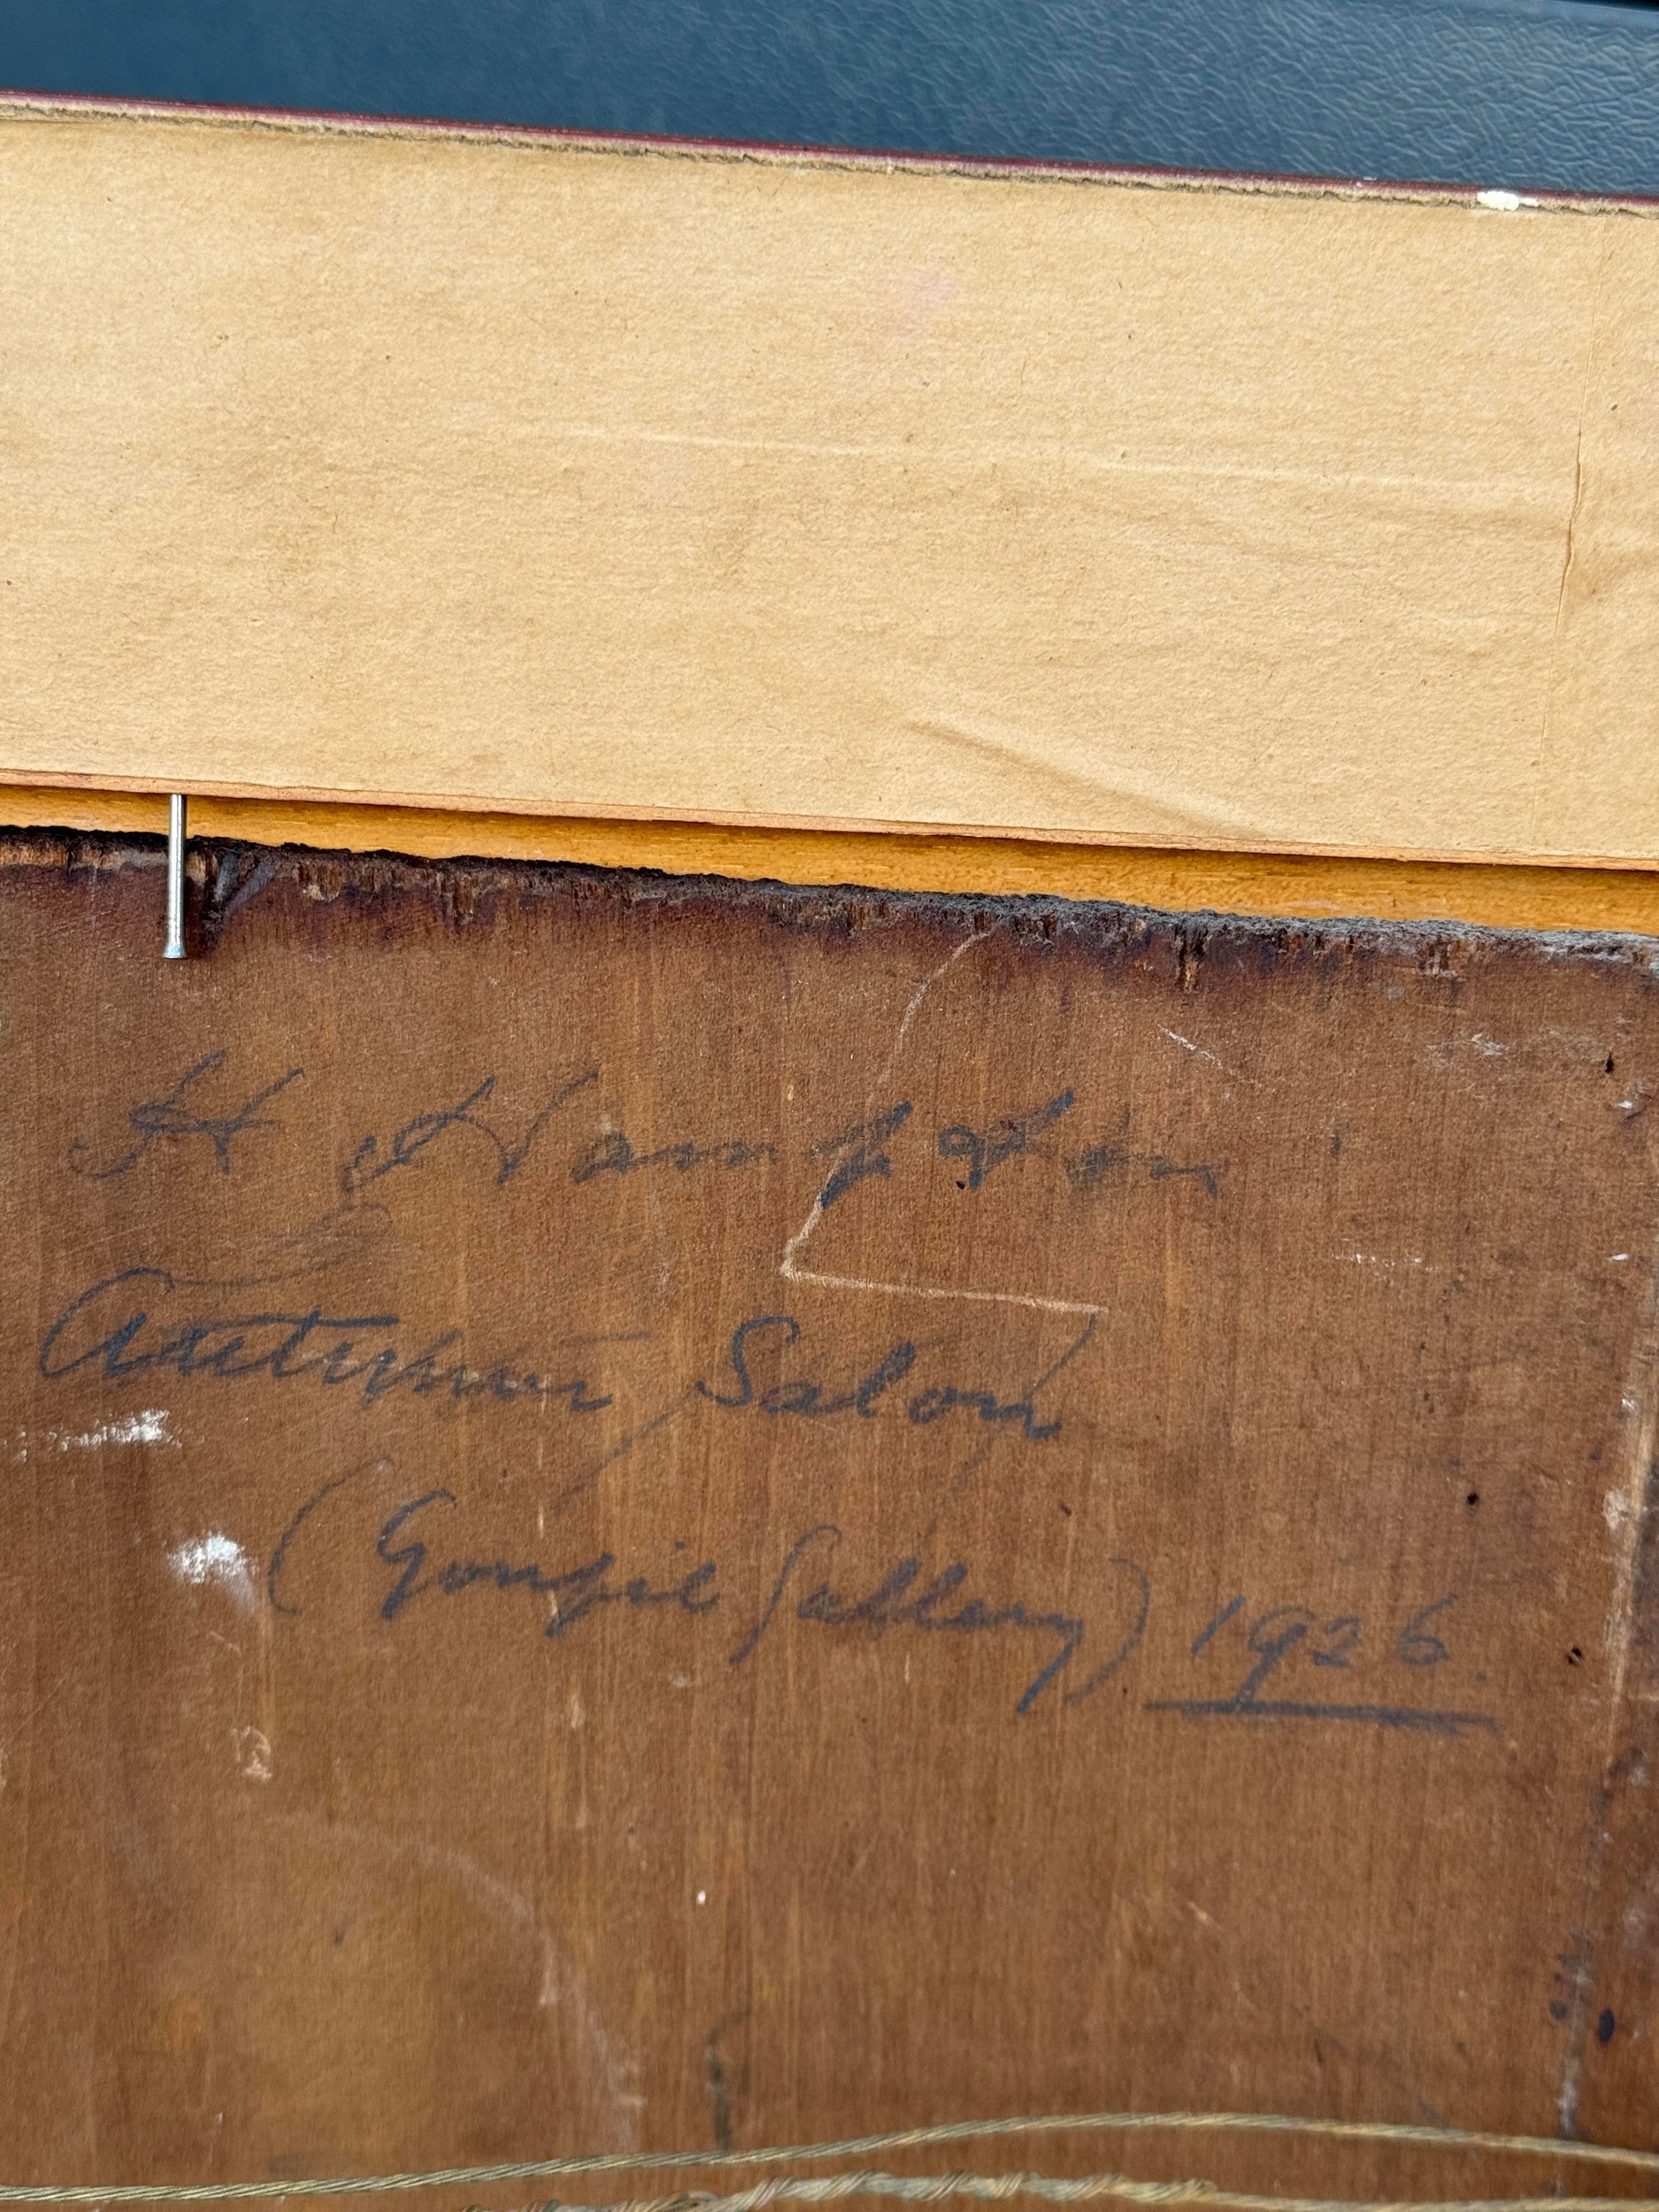 H Hampton
Autumn Salon
(Goupil Gallery) 1926.